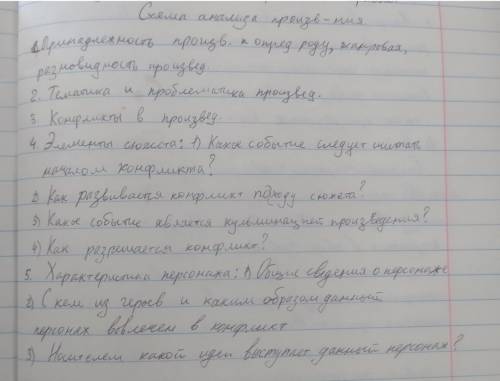 Схема анализа произв-ния
1. Принадлежность произв. к опред роду, жанровая,
разновидность произвед.
2. Тематика и проблематика произвед.
3. Конфликты в произвед.
4. Элементы сюжета: 1) Какое событие следует считать
началом конфликта?
2) Как развивается конфликт по ходу сюжета?
3) Какое событие является кульминацией произведения?
4) Как разрешается конфликт?
5. Характеристика персонажа: 1) Общие сведения о персонаже
2) С кем из героев и каким образом данный
персонаж вовлечен в конфликт
3) Носителем какой идеи выступает данный персонаж?